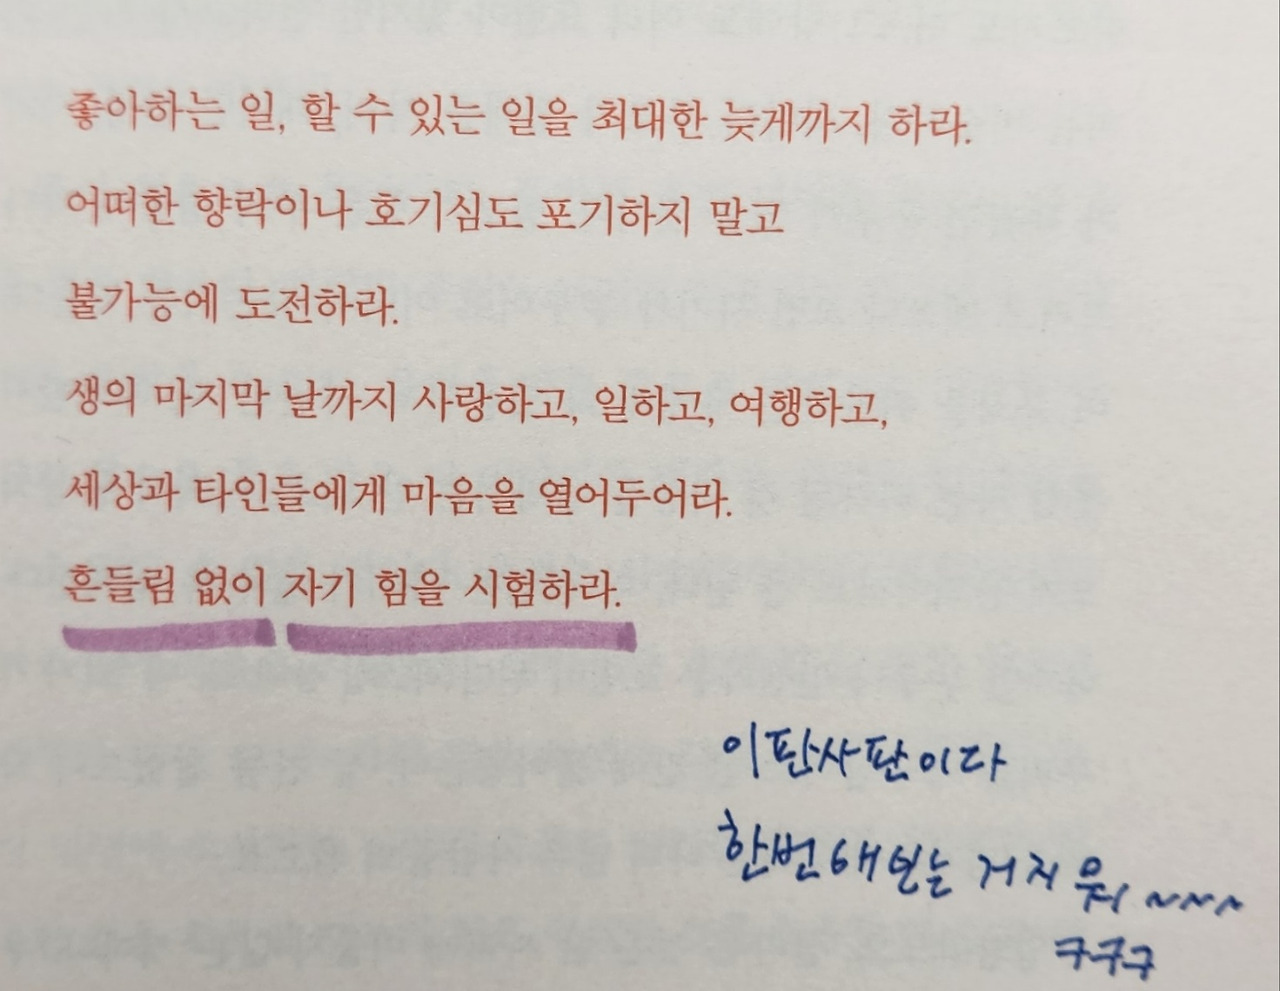 좋아하는 일, 할 수 있는 일을 최대한 늦게까지 하라.
어떠한 향락이나 호기심도 포기하지 말고
불가능에 도전하라.
생의 마지막 날까지 사랑하고, 일하고, 여행하고,
세상과 타인들에게 마음을 열어두어라.
흔들림 없이 자기 힘을 시험하라.
이판사판이다
한번 해보는 거지 뭐 ~~~
ㅋㅋㅋ